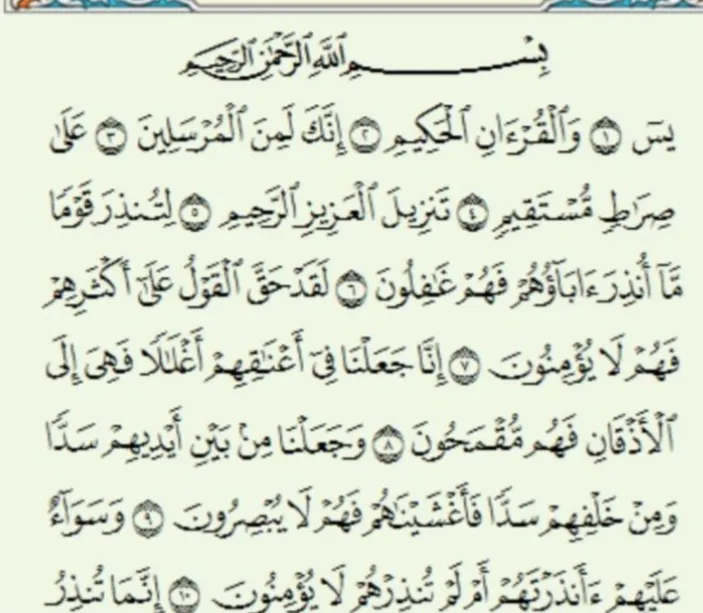 بِسْمِ ٱللَّهِ ٱلرَّحْمَٰنِ ٱلرَّحِيمِ
يسٓ ١ وَٱلْقُرْءَانِ ٱلْحَكِيمِ ٢ إِنَّكَ لَمِنَ ٱلْمُرْسَلِينَ ٣ عَلَىٰ
صِرَٰطٍ مُّسْتَقِيمٍ ٤ تَنزِيلَ ٱلْعَزِيزِ ٱلرَّحِيمِ ٥ لِتُنذِرَ قَوْمًا
مَّآ أُنذِرَ ءَابَآؤُهُمْ فَهُمْ غَٰفِلُونَ ٦ لَقَدْ حَقَّ ٱلْقَوْلُ عَلَىٰٓ أَكْثَرِهِمْ
فَهُمْ لَا يُؤْمِنُونَ ٧ إِنَّا جَعَلْنَا فِىٓ أَعْنَٰقِهِمْ أَغْلَٰلًا فَهِىَ إِلَى
ٱلْأَذْقَانِ فَهُم مُّقْمَحُونَ ٨ وَجَعَلْنَا مِنۢ بَيْنِ أَيْدِيهِمْ سَدًّا
وَمِنْ خَلْفِهِمْ سَدًّا فَأَغْشَيْنَٰهُمْ فَهُمْ لَا يُبْصِرُونَ ٩ وَسَوَآءٌ
عَلَيْهِمْ ءَأَنذَرْتَهُمْ أَمْ لَمْ تُنذِرْهُمْ لَا يُؤْمِنُونَ ١٠ إِنَّمَا تُنذِرُ